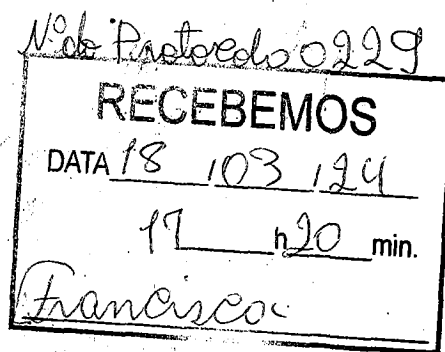 Nº do Protocolo 0229
RECEBEMOS
DATA 18 / 03 / 24
17 h 20 min.
Francisca